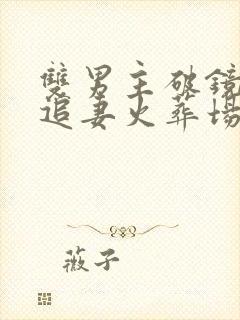 雙男主破鏡
追妻火葬場
薇子